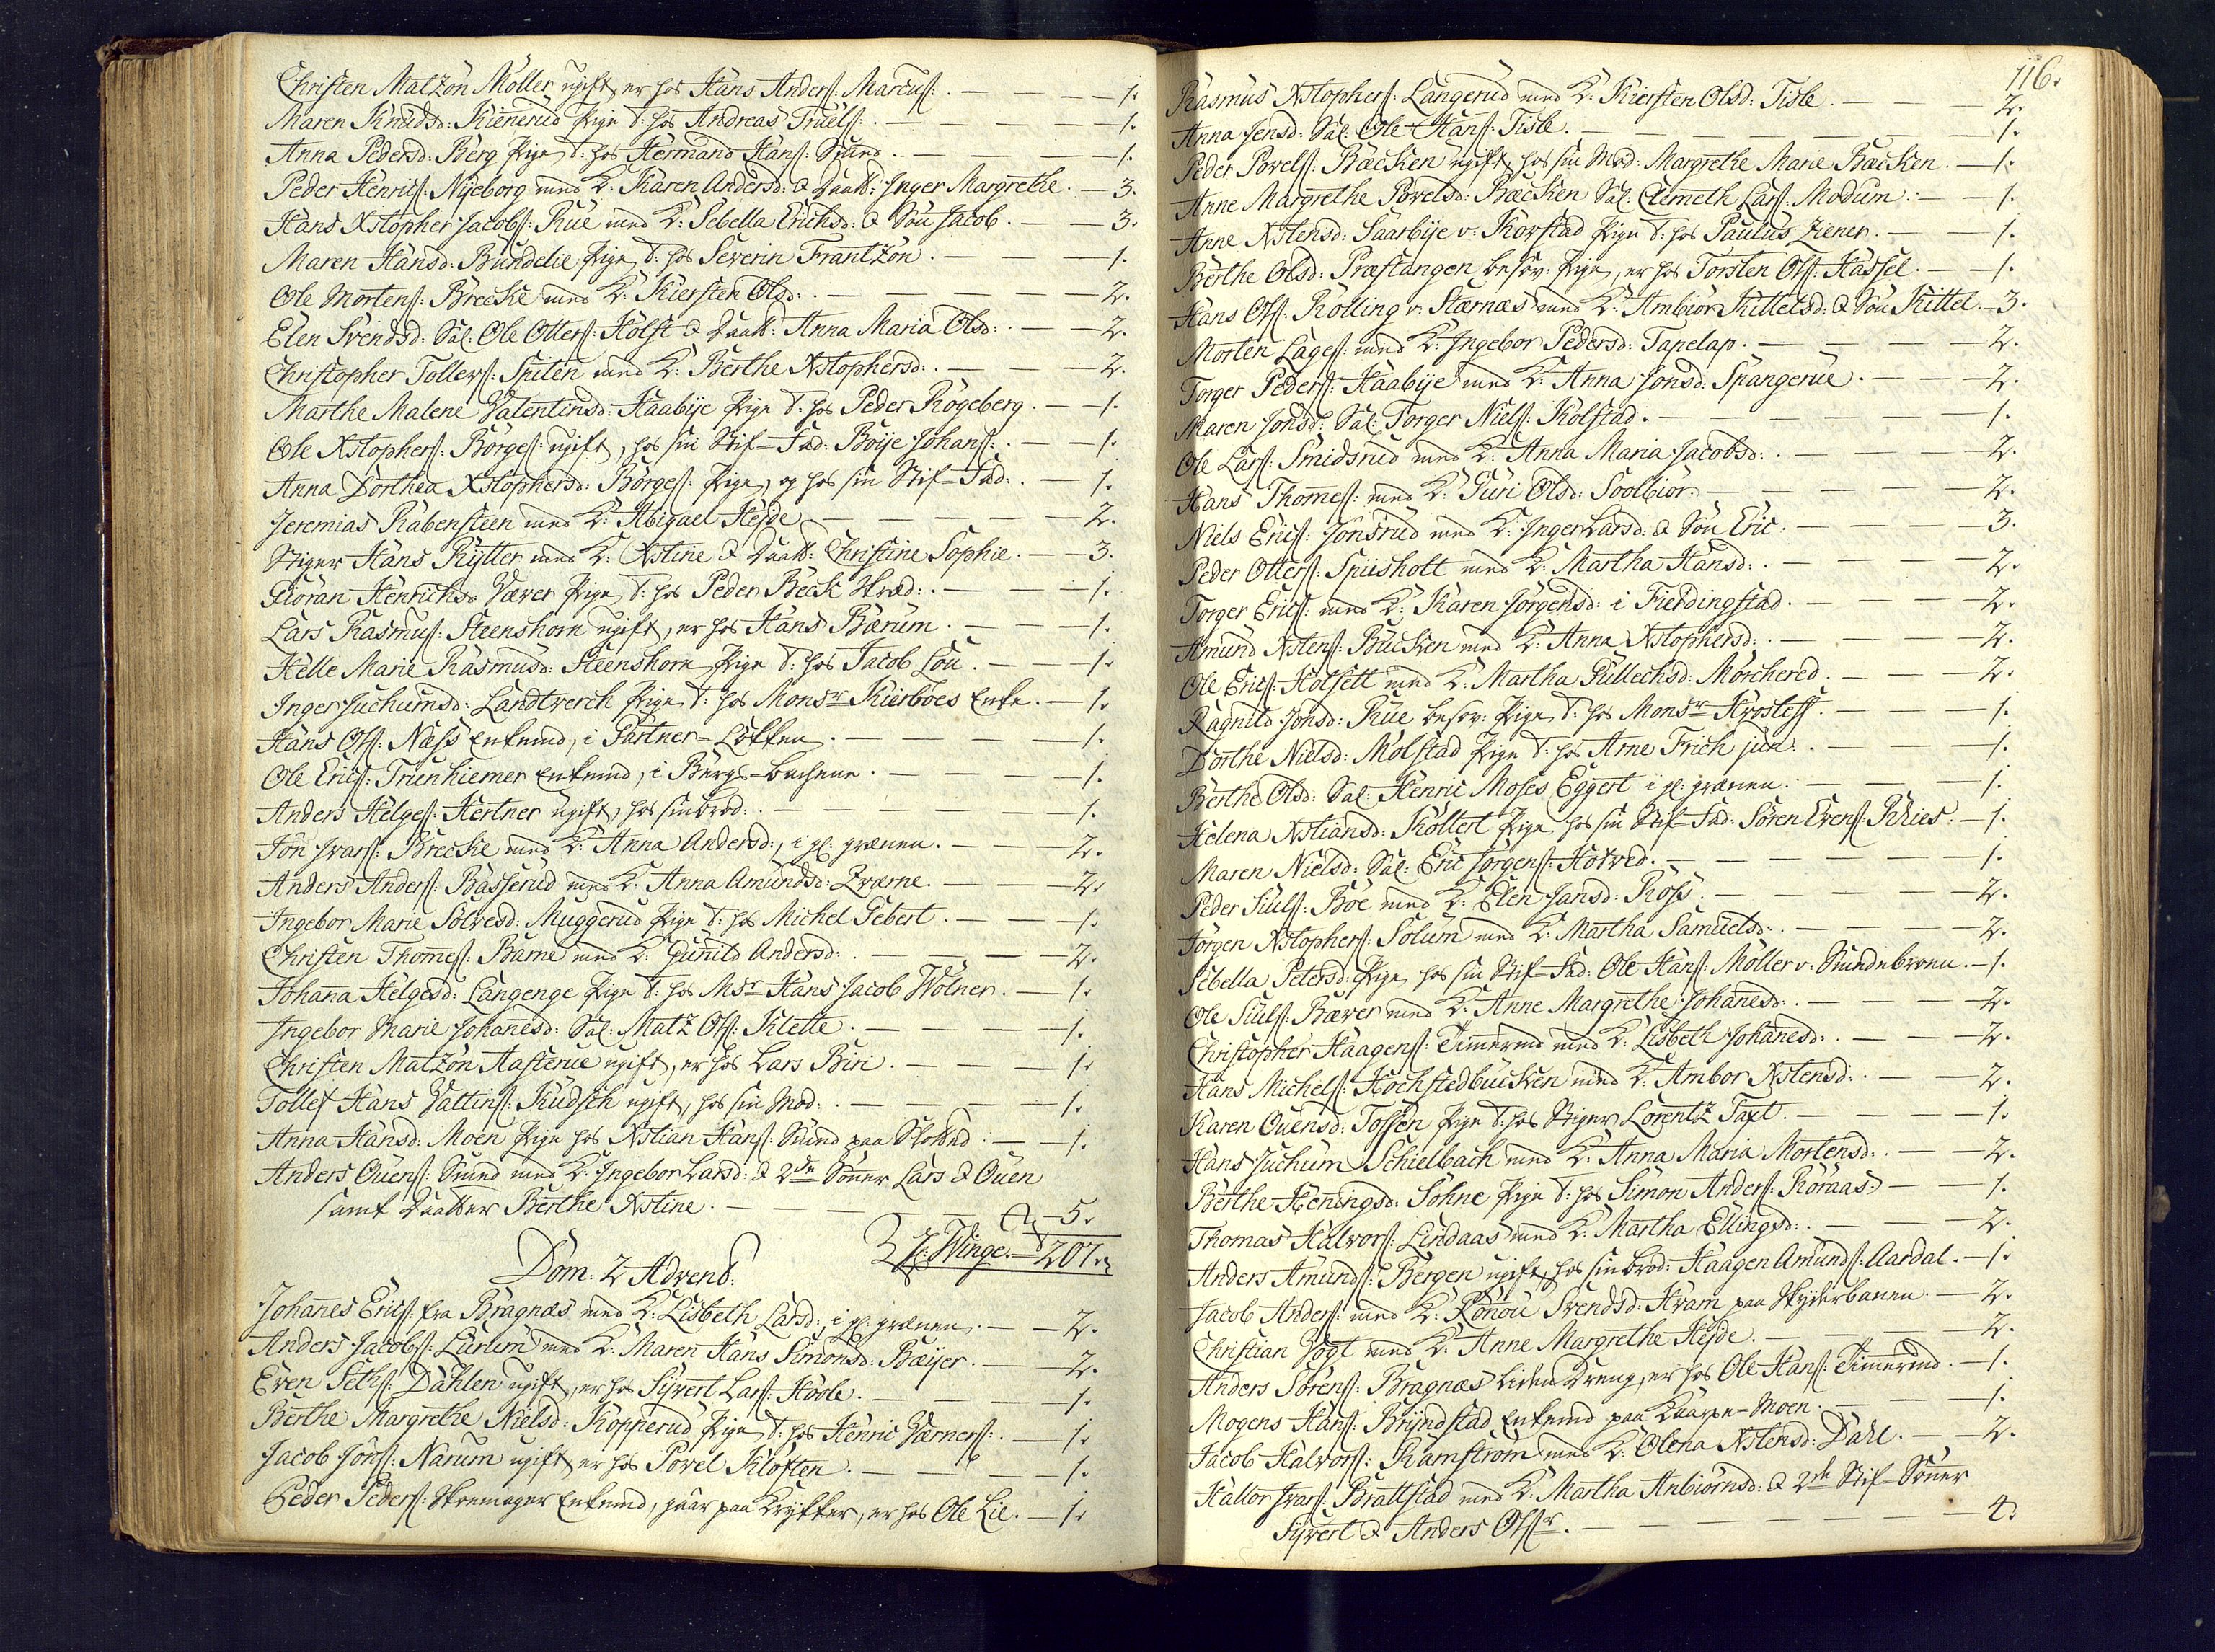 Christen Matzön Möller ugift, er hos Hans Anders: Marcus: — 1.
Maren Knudsd: Kienerud Pige t: hos Andreas Truels: — 1.
Anna Pedersd: Berg Pige t: hos Hermand Hans: Smed — 1.
Peder Henrics: Nyeborg med K: Karen Andersd: & Daatt: Inger Margrethe. — 3.
Hans Xstopher Jacobs: Rue med K: Sebella Erichsd: & Sön Jacob. — 3.
Maren Hansd: Bundelie Pige t: hos Severin Frantzön. — 1.
Ole Mortens: Brecke med K: Kiersten Olsd: — 2.
Elen Svendsd: Sal: Ole Otters: Holst & Daatt: Anna Maria Olsd: — 2.
Christopher Tollevs: Spiten med K: Berthe Xstophersd: — 2.
Marthe Malene Valentinsd: Haabye Pige t: hos Peder Rögeberg. — 1.
Ole Xstophers: Börges: ugift, hos sin Stif-Fad: Böye Johans: — 1.
Anna Dorthea Xstophersd: Börges: Pige, og hos sin Stif-Fad: — 1.
Jeremias Rabensteen med K: Abigael Hejde — 2.
Stiger Hans Rytter med K: Xstine & Daatt: Christine Sophie. — 3.
Giöran Henrichsd: Væver Pige t: hos Peder Beck Skræd: — 1.
Lars Rasmus: Steenshorn ugift, er hos Hans Bærum. — 1.
Helle Marie Rasmusd: Steenshorn Pige t: hos Jacob Lou. — 1.
Inger Juchumsd: Landtverch Pige t: hos Monsr Kierböes Enke. — 1.
Hans Ols: Næss Enkemd, i Gartner-Lökken. — 1.
Ole Erics: Trunhiemer Enkemd, i Bergs-bachene. — 1.
Anders Helges: Hertner ugift, hos sin brod: — 1.
Jon Ivars: Brecke med K: Anna Andersd:, i gl: grænen. — 2.
Anders Anders: Basserud med K: Anna Amundsd: Qværne. — 2.
Ingebor Marie Solvesd: Muggerud Pige t: hos Michel Gebert. — 1.
Christen Thomes: Bame med K: Gunild Andersd: — 2.
Johana Helgesd: Langenge Pige t: hos Msr Hans Jacob Wölner. — 1.
Ingebor Marie Johanesd: Sal: Matz Ols: Klette. — 1.
Christen Matzön Aasterue ugift, er hos Lars Biri. — 1.
Tollef Hans Vattins: Kudsch ugift, hos sin Mod: — 1.
Anna Hansd: Moen Pige hos Xstian Hans: Smed paa Stötted: — 1.
Anders Ouens: Smed med K: Ingebor Larsd: & 2de Sönner Lars & Ouen
samt Daatter Berthe Xstine. — 5.
J: Winge. — 207.
Dom. 2 Advend.
Johanes Erics: fra Bragnæs med K: Lisbeth Larsd:, i gl: grænen. — 2.
Anders Jacobs: Lurum med K: Maren Hans Simonsd: Bæyer. — 2.
Even Seths: Dahlen ugift, er hos Syvert Lars: Hoole. — 1.
Berthe Margrethe Nielsd: Kopperud Pige t: hos Henric Værners: — 1.
Jacob Jons: Narum ugift, er hos Povel Kloften. — 1.
Peder Peders: Skoemager Enkemd, gaar paa Krykker, er hos Ole Lie. — 1.
116.
Rasmus Xstophers: Langerud med K: Kiersten Olsd: Tisle. — 2.
Anna Jensd: Sal: Ole Hans: Tisle. — 1.
Peder Povels: Bæcken ugift, hos sin Mod: Margrethe Marie Bæcken. — 1.
Anne Margrethe Povelsd: Bæcken Sal: Clemeth Lars: Modum. — 1.
Anne Xstensd: Saarbye v: Korstad Pige t: hos Paulus Ziener. — 1.
Berthe Olsd: Præstangen besov: Pige, er hos Torsten Ols: Hassel. — 1.
Hans Ols: Kölling v: Stærnæs med K: Ambior Kittelsd: & Sön Kittel. — 3.
Morten Lages: med K: Ingebor Pedersd: Tapelap. — 2.
Torger Peders: Haabye med K: Anna Jonsd: Spangerue. — 2.
Maren Jonsd: Sal: Torger Niels: Kolstad. — 1.
Ole Lars: Smidsrud med K: Anna Maria Jacobsd: — 2.
Hans Thomes: med K: Guri Olsd: Soolbiör. — 2.
Niels Erics: Jonsrud med K: Inger Larsd: & Sön Eric. — 3.
Peder Otters: Spiisholt med K: Martha Hansd: — 2.
Torger Erics: med K: Karen Jörgensd: i Fierdingstad. — 2.
Amund Xstens: Backen med K: Anna Xstophersd: — 2.
Ole Erics: Holsett med K: Martha Gullechsd: Mörchered. — 2.
Ragnild Jonsd: Rue besov: Pige t: hos Monsr Hvosleff. — 1.
Dorthe Nielsd: Molstad Pige t: hos Arne Frich jun: — 1.
Berthe Olsd: Sal: Henric Moses Eggert i gl: grænen. — 1.
Helena Xstiansd: Költert Pige hos sin Stif-Fad: Sören Evens: Kries. — 1.
Maren Nielsd: Sal: Eric Jörgens: Hotved. — 1.
Peder Siuls: Böe med K: Elen Jansd: Ross. — 2.
Jörgen Xstophers: Solum med K: Martha Samuelsd: — 2.
Sebella Petersd: Pige hos sin Stif-Fad: Ole Hans: Möller v: Sundebroen. — 1.
Ole Siuls: Bæver med K: Anne Margrethe Johanesd: — 2.
Christopher Haagens: Timermd med K: Lisbeth Johanesd: — 2.
Hans Michels: Hochstedbacken med K: Ambor Xstensd: — 2.
Karen Ouensd: Tossen Pige t: hos Stiger Lorentz Taxt. — 1.
Hans Juchum Schielbach med K: Anna Maria Mortensd: — 2.
Berthe Heningsd: Söhne Pige t: hos Simon Anders: Röraas. — 1.
Thomas Halvors: Lindaas med K: Martha Ellingsd: — 2.
Anders Amunds: Bergen ugift, hos sin brod: Haagen Amunds: Aardal. — 1.
Jacob Anders: med K: Ronou Svendsd: Hvam paa Skyderbanen. — 2.
Christian Vogt med K: Anne Margrethe Hejde. — 2.
Anders Sörens: Bragnæs liden Dreng, er hos Ole Hans: Timermd. — 1.
Mogens Hans: Bryndstad Enkemd paa Kaarpe-Moen. — 1.
Jacob Halvors: Ramström med K: Olena Xstensd: Dahl. — 2.
Halvor Ivars: Brattstad med K: Martha Anbiörnsd: & 2de Stif-Sönner
Syvert & Anders Olsr. — 4.